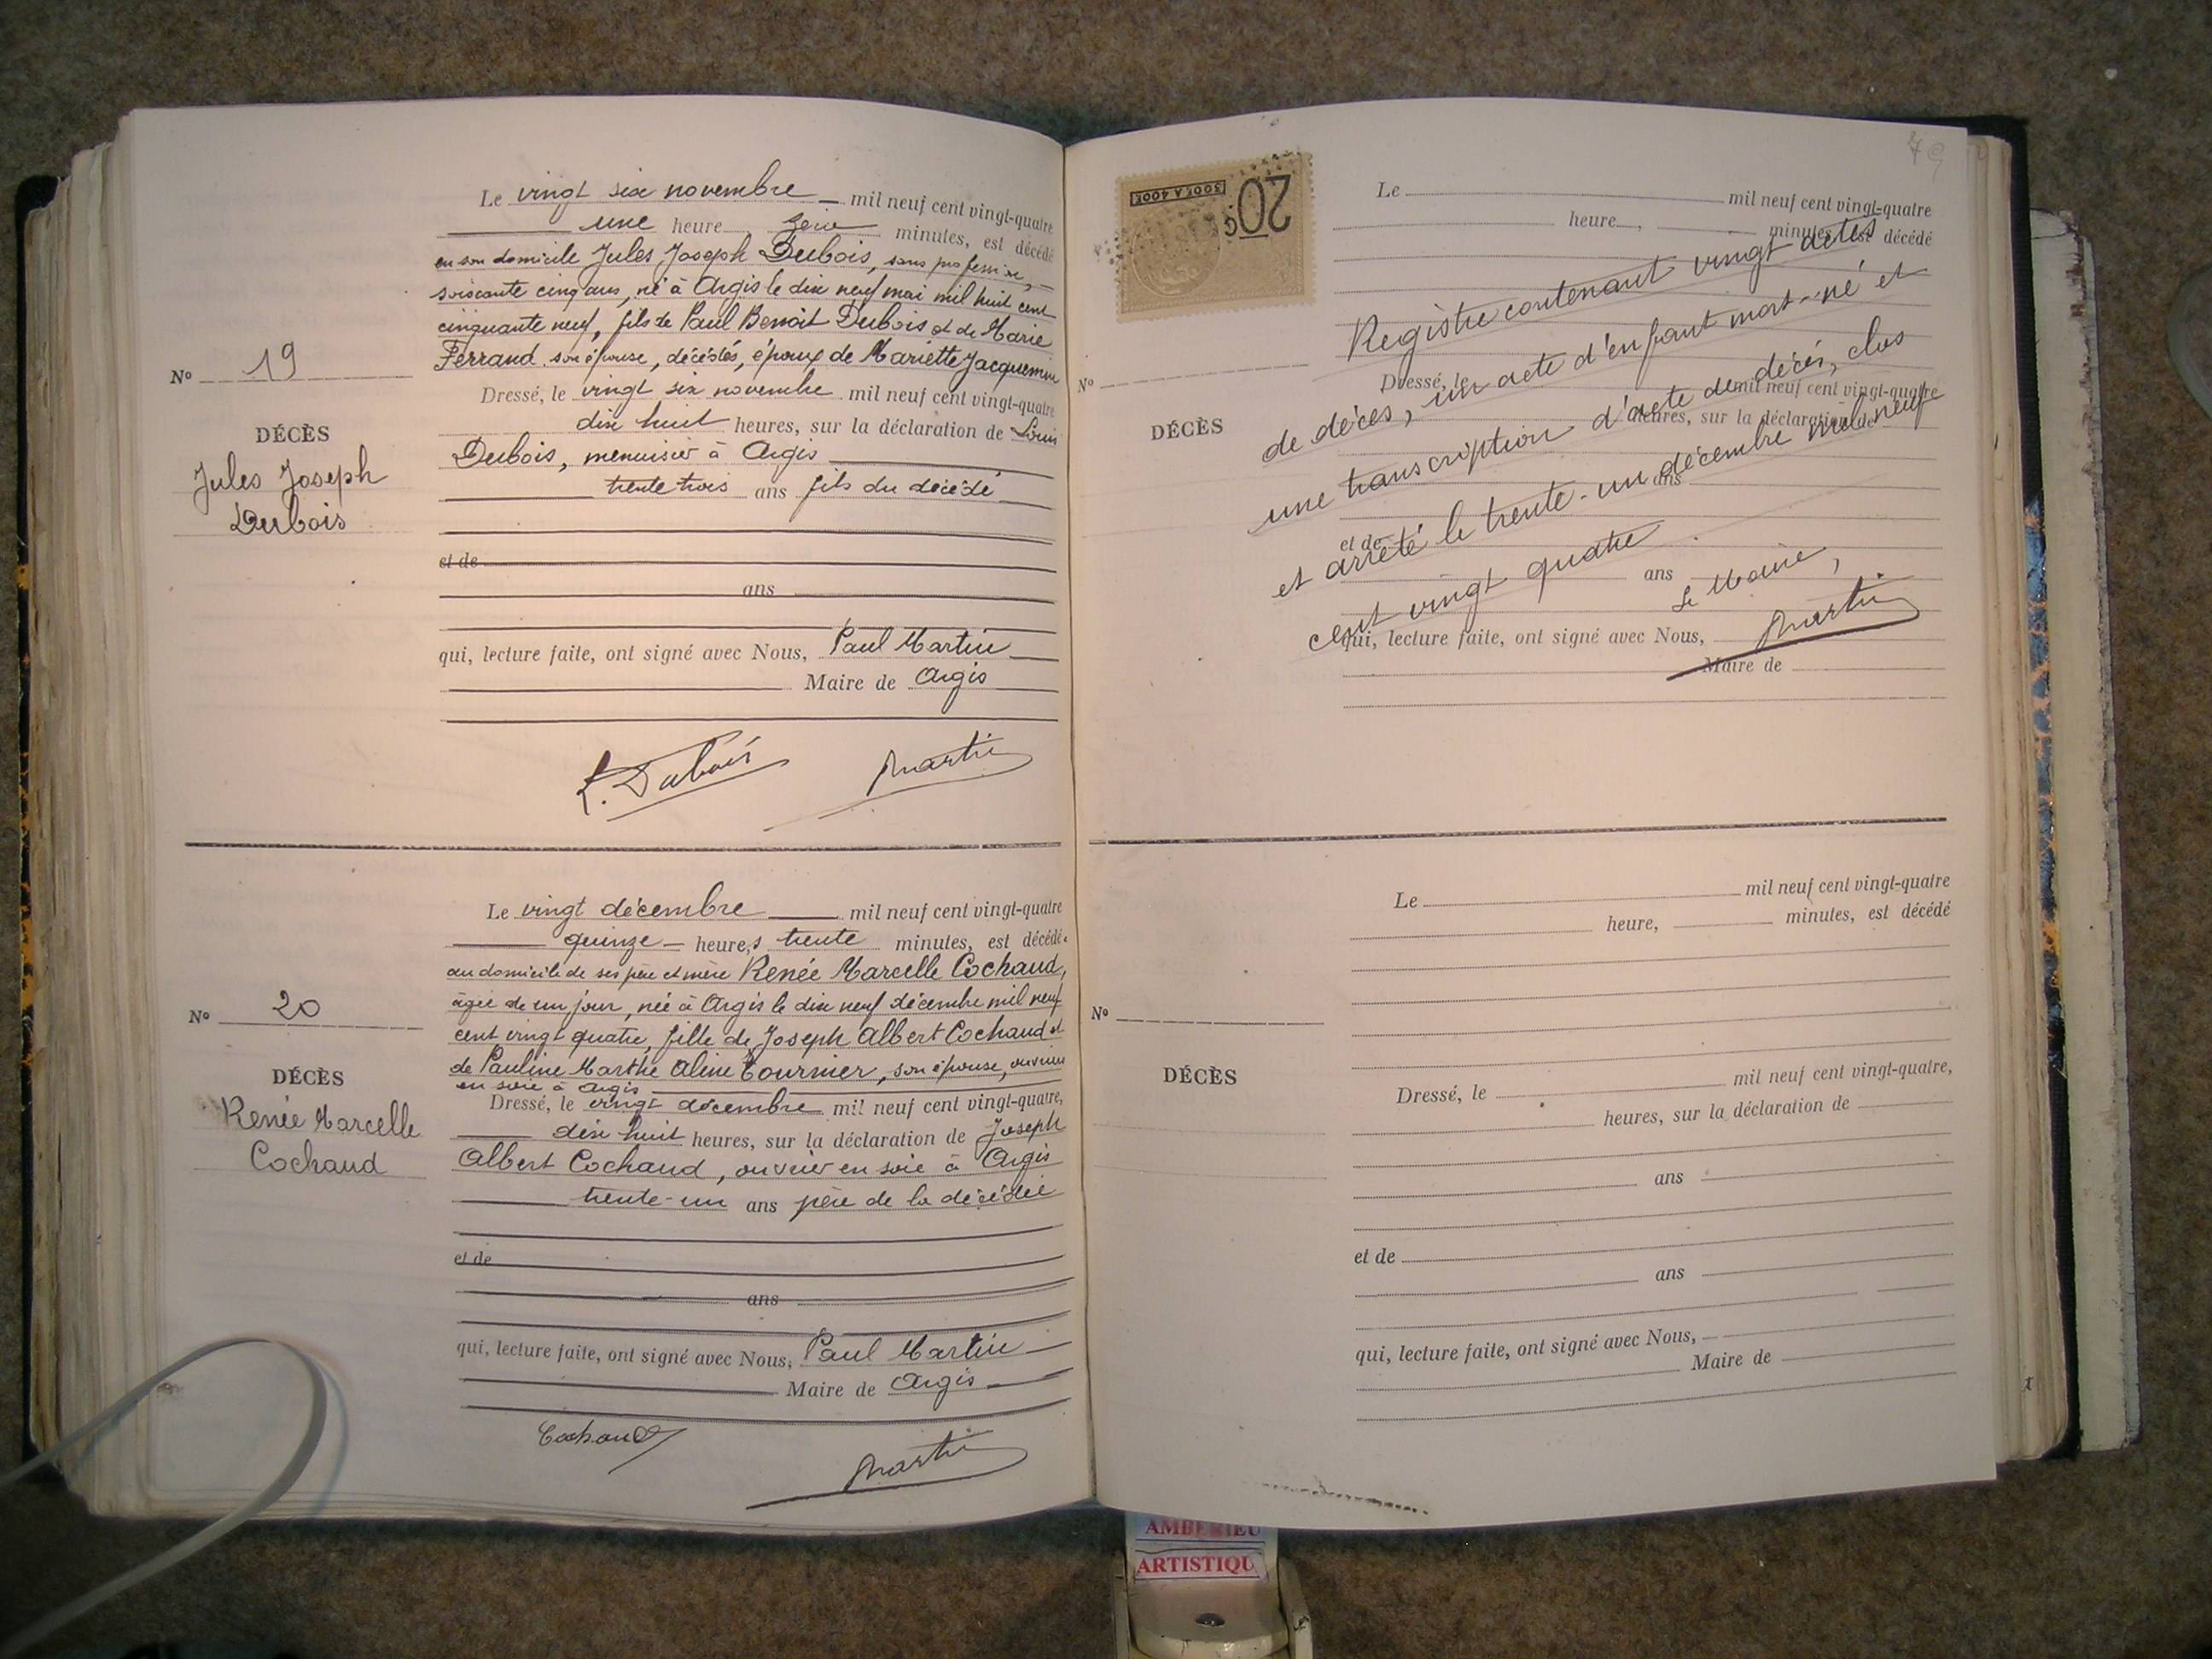 Le vingt six novembre mil neuf cent vingt-quatre
une heure zéro minutes, est décédé
en son domicile Jules Joseph Dubois, sans profession,
soixante cinq ans, né à Argis le dix neuf mai mil huit cent
cinquante neuf, fils de Paul Benoît Dubois et de Marie
Ferrand son épouse, décédés, époux de Mariette Jacquemin
Nº 19
Dressé, le vingt six novembre mil neuf cent vingt-quatre
dix huit heures, sur la déclaration de Louis
DÉCÈS
Dubois, menuisier à Argis
Jules Joseph
Dubois
trente trois ans fils du décédé
et de
ans
qui, lecture faite, ont signé avec Nous, Paul Martin
Maire de Argis
L. Dubois Martin
Le vingt décembre mil neuf cent vingt-quatre
quinze heures trente minutes, est décédée
au domicile de ses père et mère Renée Marcelle Cochaud,
âgée de un jour, née à Argis le dix neuf décembre mil neuf
Nº 20
cent vingt quatre, fille de Joseph Albert Cochaud et
de Pauline Marthe Aline Tournier, son épouse, ouvriers
en soie à Argis
DÉCÈS
Renée Marcelle
Cochaud
Dressé, le vingt décembre mil neuf cent vingt-quatre,
dix huit heures, sur la déclaration de Joseph
Albert Cochaud, ouvrier en soie à Argis
trente-un ans père de la décédée
et de
ans
qui, lecture faite, ont signé avec Nous, Paul Martin
Maire de Argis
Cochaud
Martin
300F A 400F
20c
Le mil neuf cent vingt-quatre
heure, minutes, est décédé
Nº
DÉCÈS
Dressé, le mil neuf cent vingt-quatre
heures, sur la déclaration de
ans
et de
ans
qui, lecture faite, ont signé avec Nous,
Maire de
Registre contenant vingt actes
de décès, un acte d'enfant mort-né et
une transcription d'acte de décès, clos
et arrêté le trente-un décembre mil neuf
cent vingt quatre
Le Maire,
Martin
Le mil neuf cent vingt-quatre
heure, minutes, est décédé
Nº
DÉCÈS
Dressé, le mil neuf cent vingt-quatre,
heures, sur la déclaration de
ans
et de
ans
qui, lecture faite, ont signé avec Nous,
Maire de
AMBERIEU
ARTISTIQU